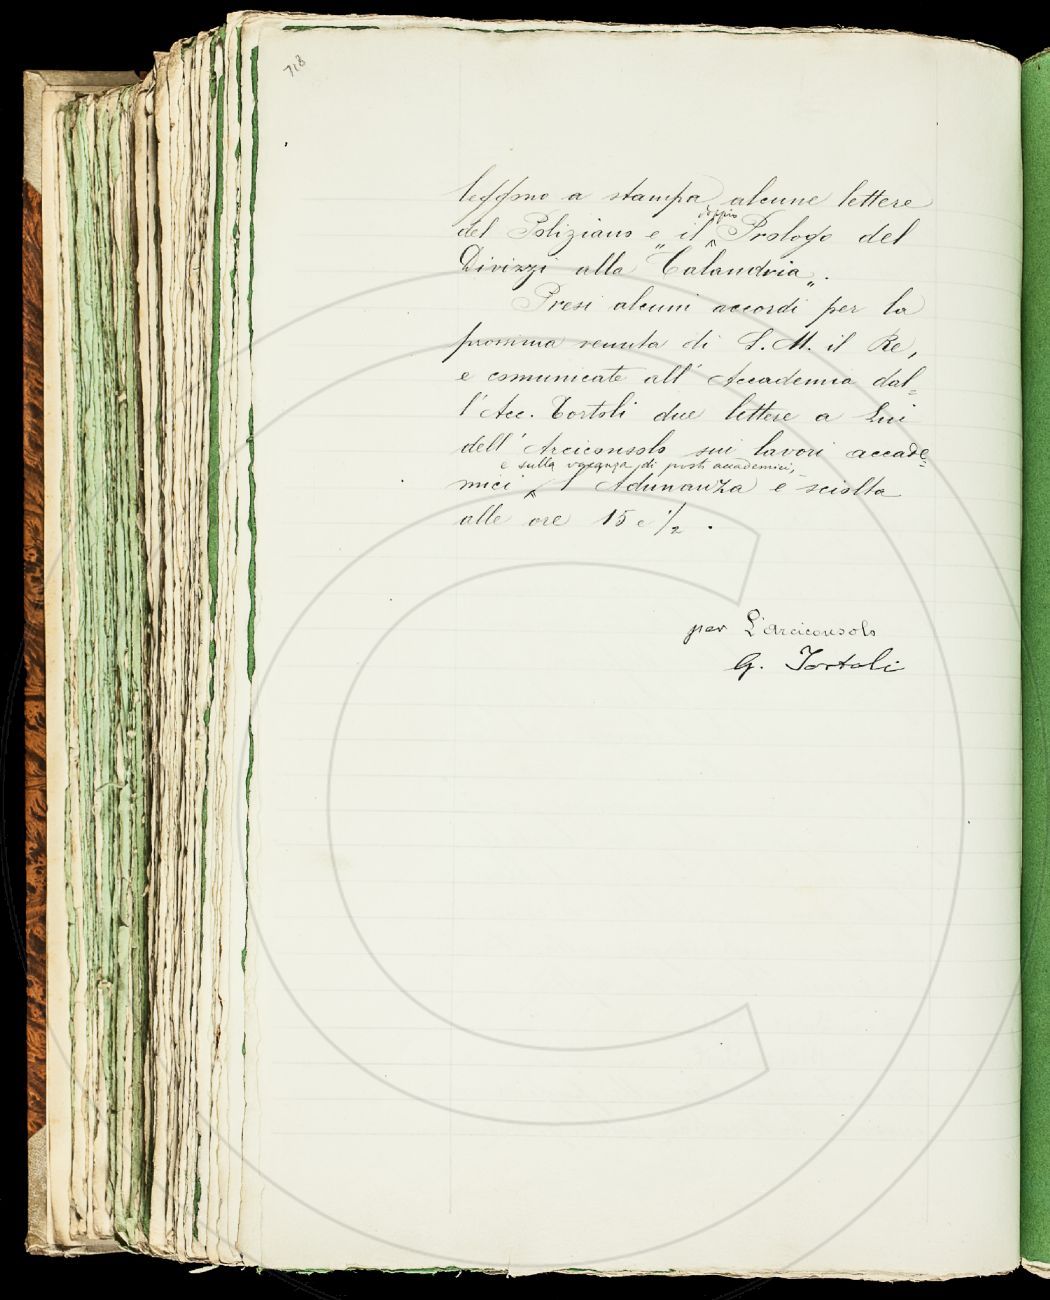 718
leggono a stampa, alcune lettere
del Poliziano e il ^doppio Prologo del
Divizzi alla "Calandria".
Presi alcuni accordi per la
prossima venuta di S. M. il Re,
e comunicate all'Accademia dal=
l'Acc. Tortoli due lettere a Lui
dell'Arciconsolo sui lavori accade=
e sulla vacanza di posti accademici,
mici ^ l'Adunanza è sciolta
alle ore 15 e 1/2.
per L'arciconsolo
G. Tortoli